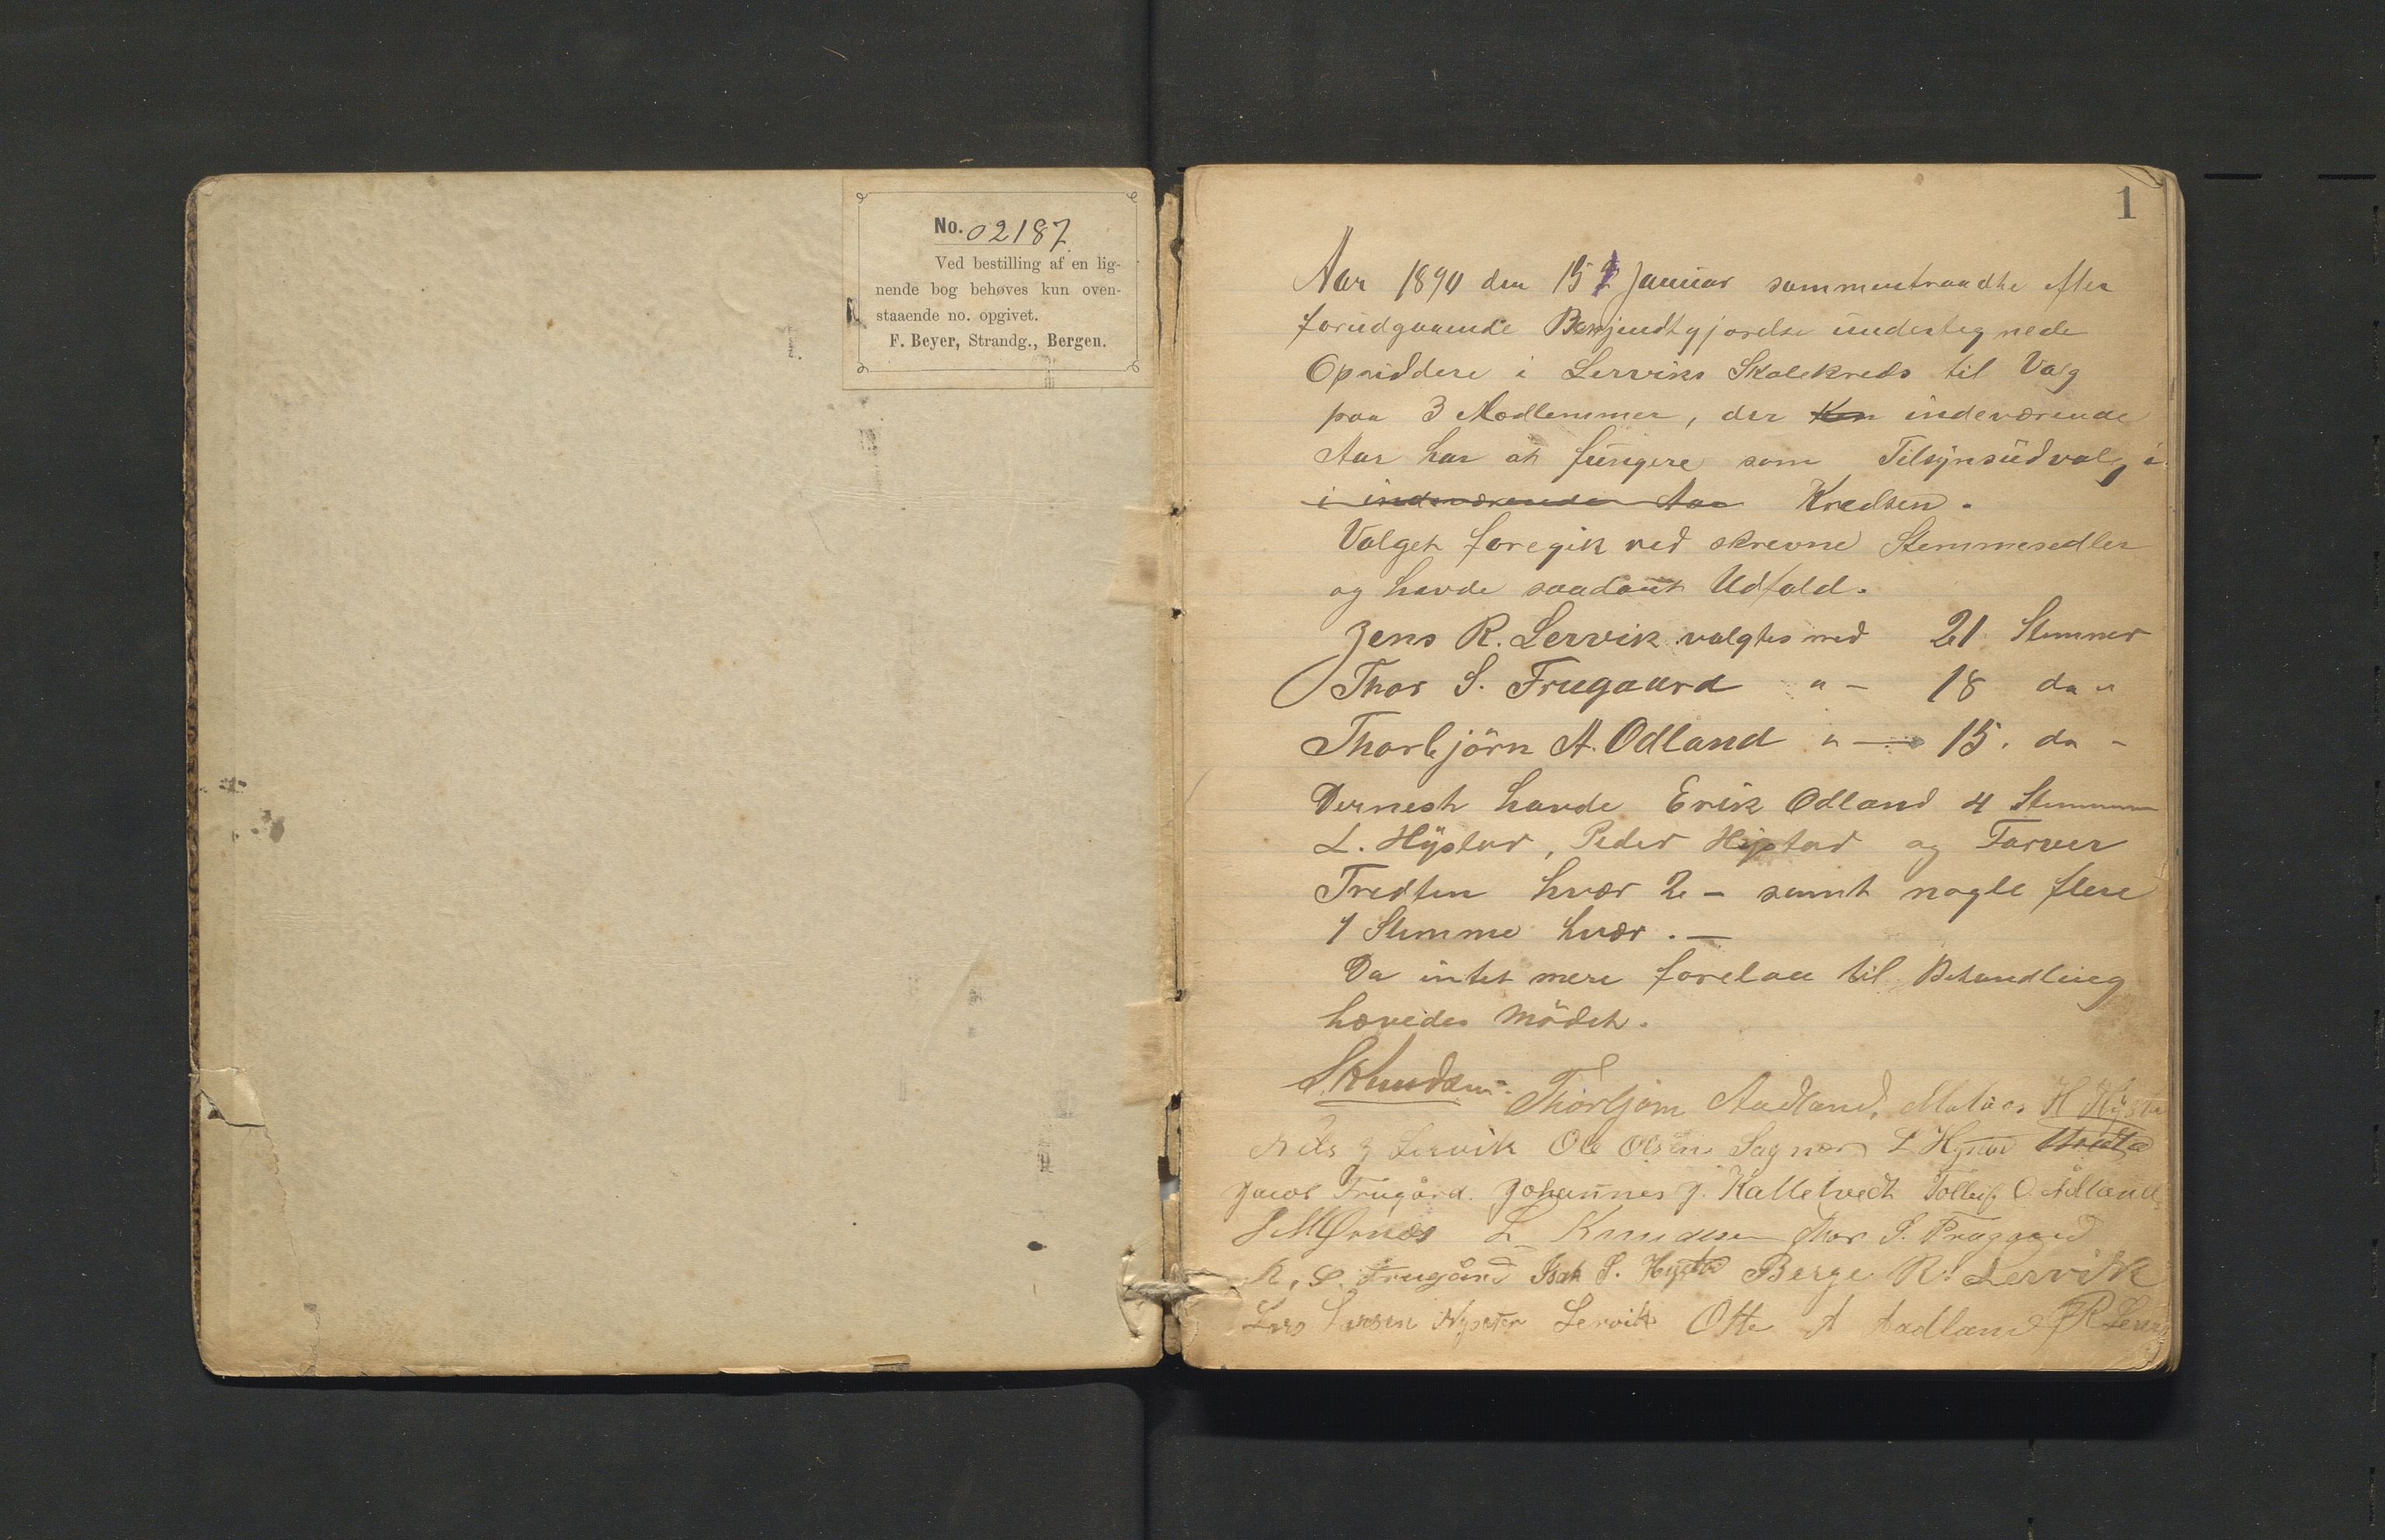 No. 02187
Ved bestilling af en lig-
nende bog behøves kun oven-
staaende no. opgivet.
F. Beyer, Strandg., Bergen.
1
Aar 1890 den 15 Januar sammentraadte efter
forudgaaende Bekjendtgjørelse undertegnede
Opsiddere i Lerviks Skolekreds til Valg
paa 3 Medlemmer, der indeværende
Aar har at fungere som Tilsynsudvalg i
i indeværende Aar Kredsen.
Valget foregik ved skrevne Stemmesedler
og havde saadant Udfald.
Jens R. Lervik valgtes med 21 Stemmer
Thor S. Frugaard " - 18 do "
Thorbjörn A. Odland " — 15. do -
Dernest havde Erik Odland 4 Stemmer
L. Hÿstad, Peder Hÿstad og Farver
Tredten hvær 2 - samt nogle flere
1 Stemme hvær. —
Da intet mere forelaa til Behandling
hævedes Mödet.
S Knudsen. Thorbjørn Aadland, H
Nils J Lervik Ole Olsen Sagvær L Hystad
Jacob Frugård. Johannes J. Kalletvedt Tolleif O. Ådland
L Knudsen Thor S. Frugaard
R. S. Frugård Isak S. Hystd Berge R. Lervik
Lars Larsen Lervik Otte A Aadland